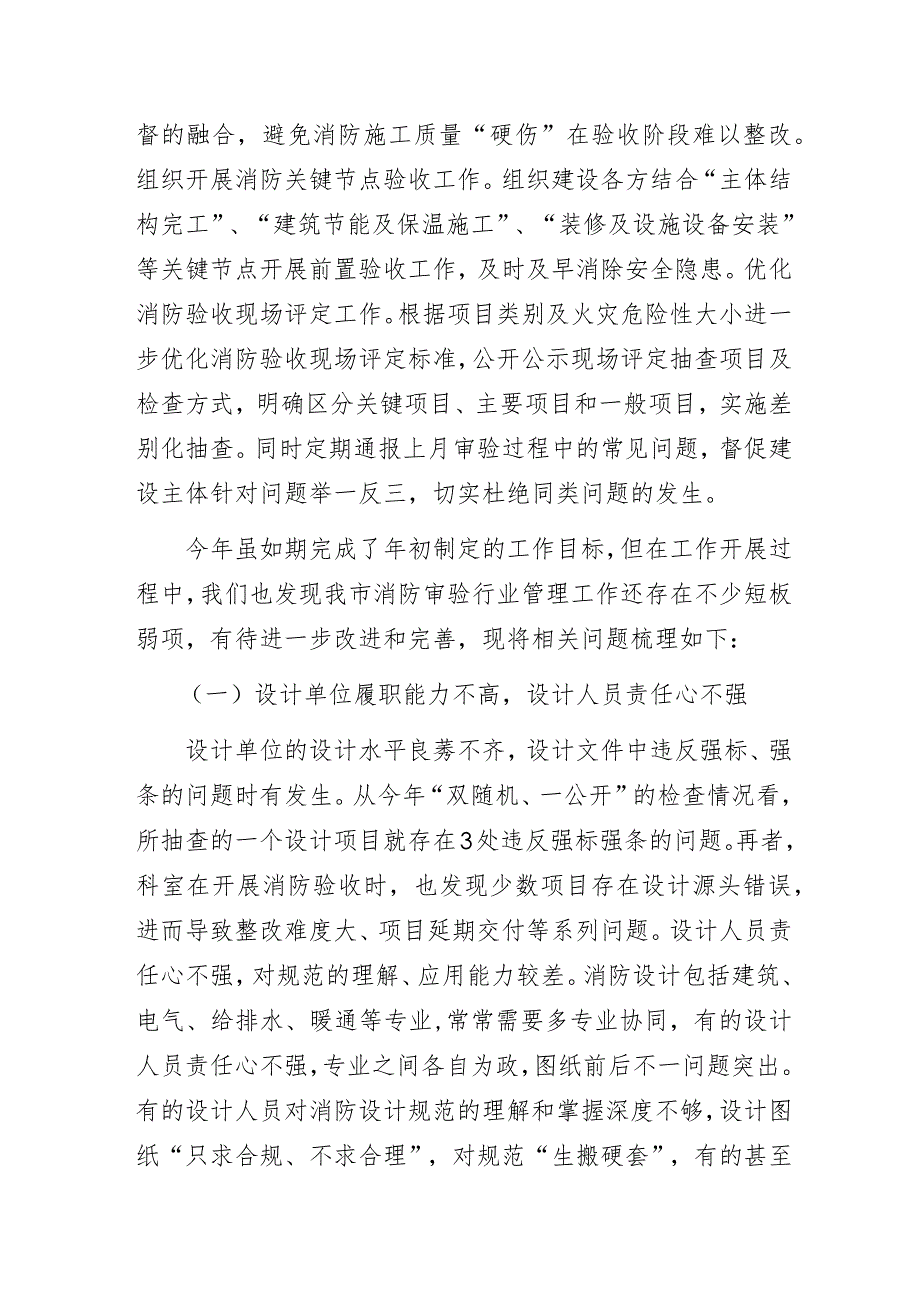 督的融合，避免消防施工质量“硬伤”在验收阶段难以整改。
组织开展消防关键节点验收工作。组织建设各方结合“主体结
构完工”、“建筑节能及保温施工”、“装修及设施设备安装”
等关键节点开展前置验收工作，及时及早消除安全隐患。优化
消防验收现场评定工作。根据项目类别及火灾危险性大小进一
步优化消防验收现场评定标准，公开公示现场评定抽查项目及
检查方式，明确区分关键项目、主要项目和一般项目，实施差
别化抽查。同时定期通报上月审验过程中的常见问题，督促建
设主体针对问题举一反三，切实杜绝同类问题的发生。
今年虽如期完成了年初制定的工作目标，但在工作开展过
程中，我们也发现我市消防审验行业管理工作还存在不少短板
弱项，有待进一步改进和完善，现将相关问题梳理如下：
（一）设计单位履职能力不高，设计人员责任心不强
设计单位的设计水平良莠不齐，设计文件中违反强标、强
条的问题时有发生。从今年“双随机、一公开”的检查情况看，
所抽查的一个设计项目就存在3处违反强标强条的问题。再者，
科室在开展消防验收时，也发现少数项目存在设计源头错误，
进而导致整改难度大、项目延期交付等系列问题。设计人员责
任心不强，对规范的理解、应用能力较差。消防设计包括建筑、
电气、给排水、暖通等专业,常常需要多专业协同，有的设计
人员责任心不强，专业之间各自为政，图纸前后不一问题突出。
有的设计人员对消防设计规范的理解和掌握深度不够，设计图
纸“只求合规、不求合理”，对规范“生搬硬套”，有的甚至